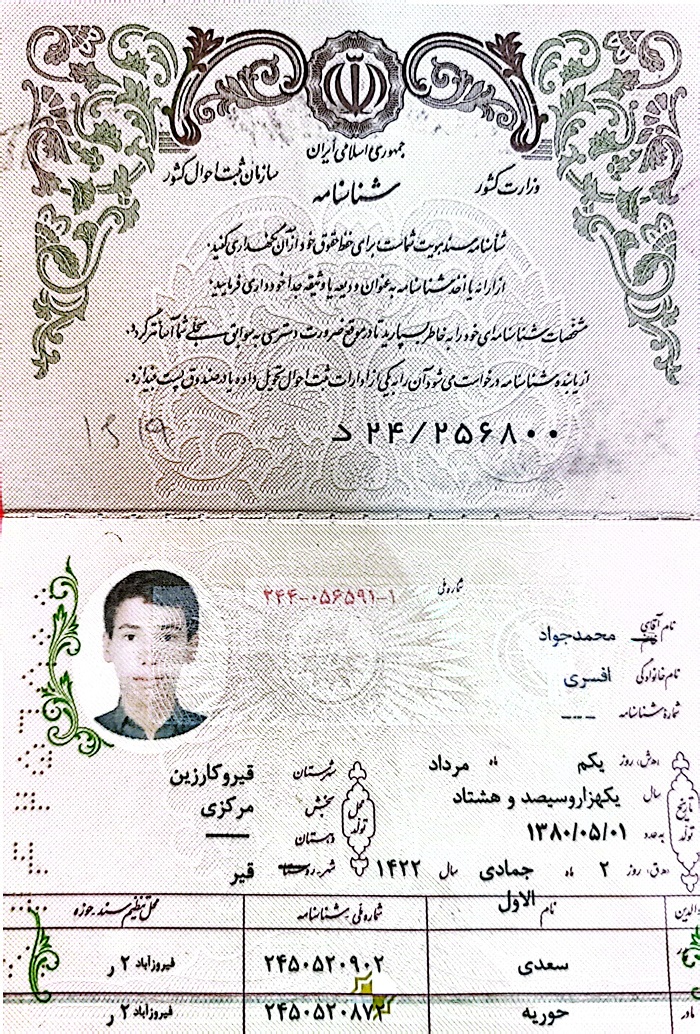 جمهوری اسلامی ایران
وزارت کشور
سازمان ثبت احوال کشور
شناسنامه
شناسنامه سند هویت شماست برای حفظ حقوق خود از آن نگهداری کنید.
از ارائه یا اخذ شناسنامه به عنوان ودیعه یا وثیقه جداً خودداری فرمایید؛
مشخصات شناسنامه‌ای خود را به خاطر بسپارید تا در مواقع ضرورت دسترسی به سوابق سجلی شما آسانتر گردد.
از یابنده شناسنامه درخواست می‌شود آن را به یکی از ادارات ثبت احوال تحویل داده یا در صندوق پست بیندازد.
د ۲۴/۲۵۶۸۰۰
شماره ملی ۲۴۴-۰۵۶۵۹۱-۱
نام آقای محمدجواد
نام خانوادگی افسری
شماره شناسنامه ---
تاریخ تولد
روز یکم ماه مرداد
سال یکهزاروسیصد و هشتاد
به عدد ۱۳۸۰/۰۵/۰۱
روز ۲ ماه جمادی الاول سال ۱۴۲۲
محل تولد
شهرستان قیروکارزین
بخش مرکزی
دهستان
شهر-روستا قیر
والدین نام شماره ملی-شناسنامه محل تنظیم سند-حوزه
پدر سعدی ۲۴۵۰۵۲۰۹۰۲ فیروزآباد ۲ ر
مادر حوریه ۲۴۵۰۵۲۰۸۷ فیروزآباد ۲ ر